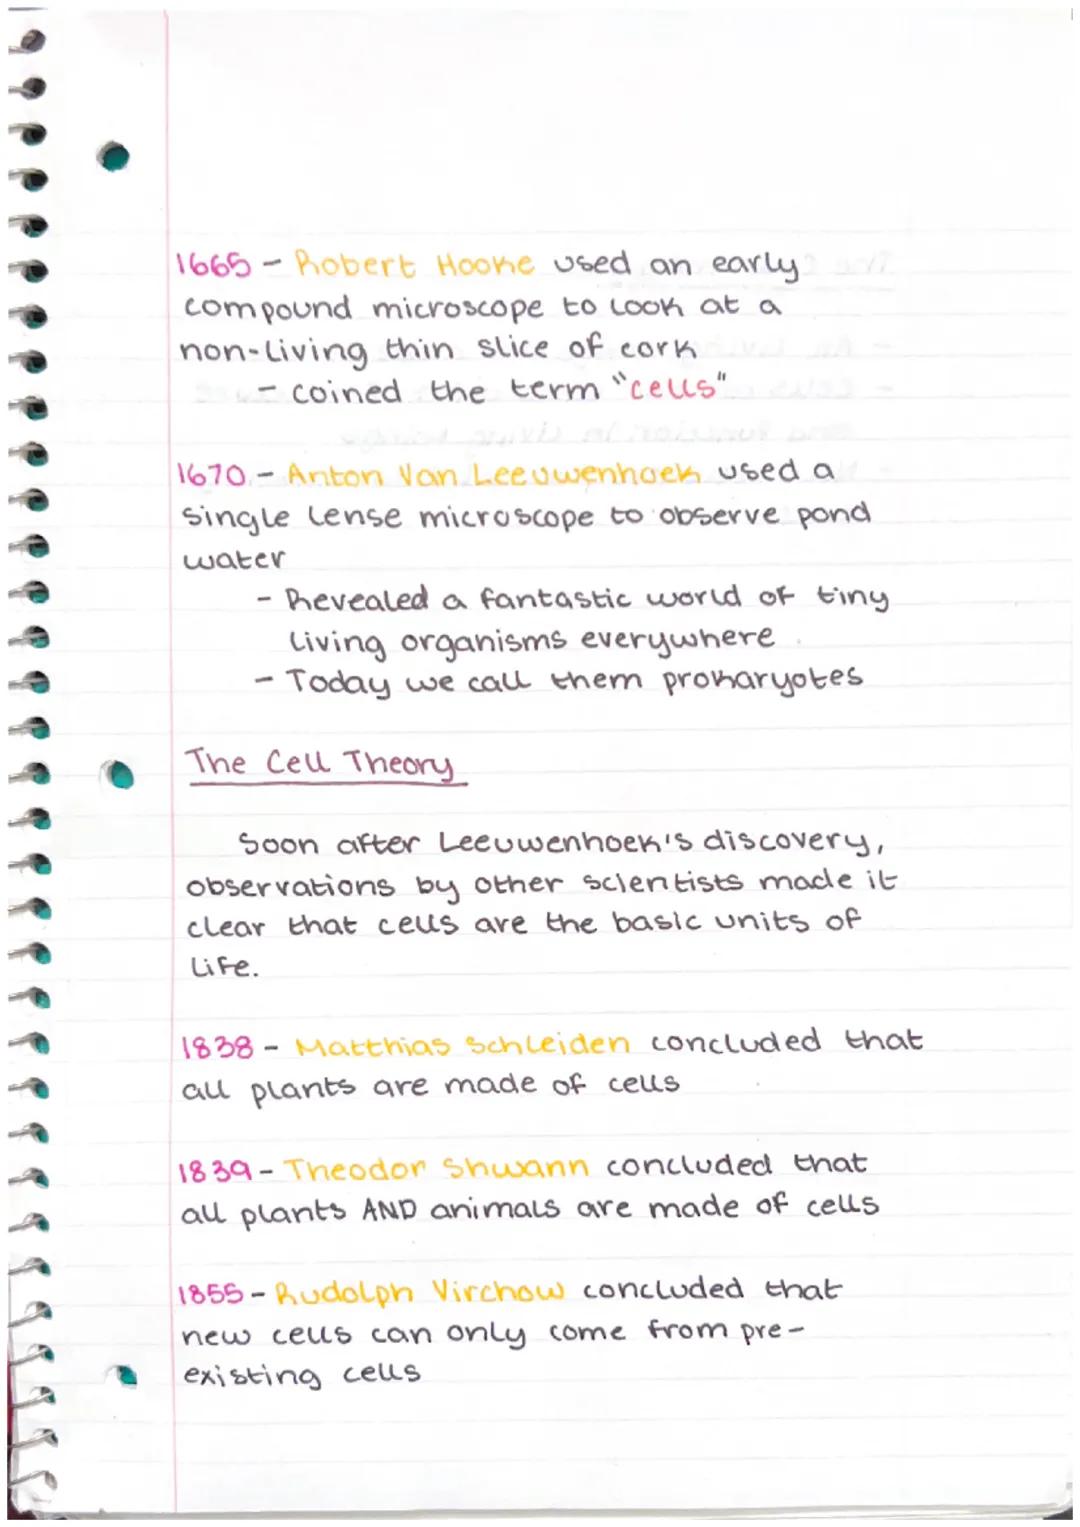 1665 - Robert Hooke used an early
compound microscope to look at a
non-living thin slice of cork
- coined the term "cells"
1670 - Anton Van Leeuwenhoek used a
single lense microscope to observe pond
water
- Revealed a fantastic world of tiny
living organisms everywhere
- Today we call them prokaryotes
The Cell Theory
Soon after Leeuwenhoek's discovery,
observations by other scientists made it
clear that cells are the basic units of
life.
1838 - Matthias Schleiden concluded that
all plants are made of cells
1839 - Theodor Shwann concluded that
all plants AND animals are made of cells
1855 - Rudolph Virchow concluded that
new cells can only come from pre-
existing cells